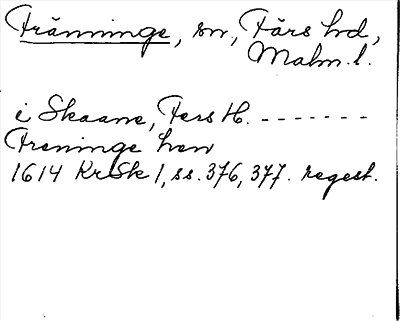 Fränninge, sn, Färs hd,
Malm. l.
i Skaane, Fers H. -------
Freninge hen
1614 KrSk 1, ss. 376, 377. regest.